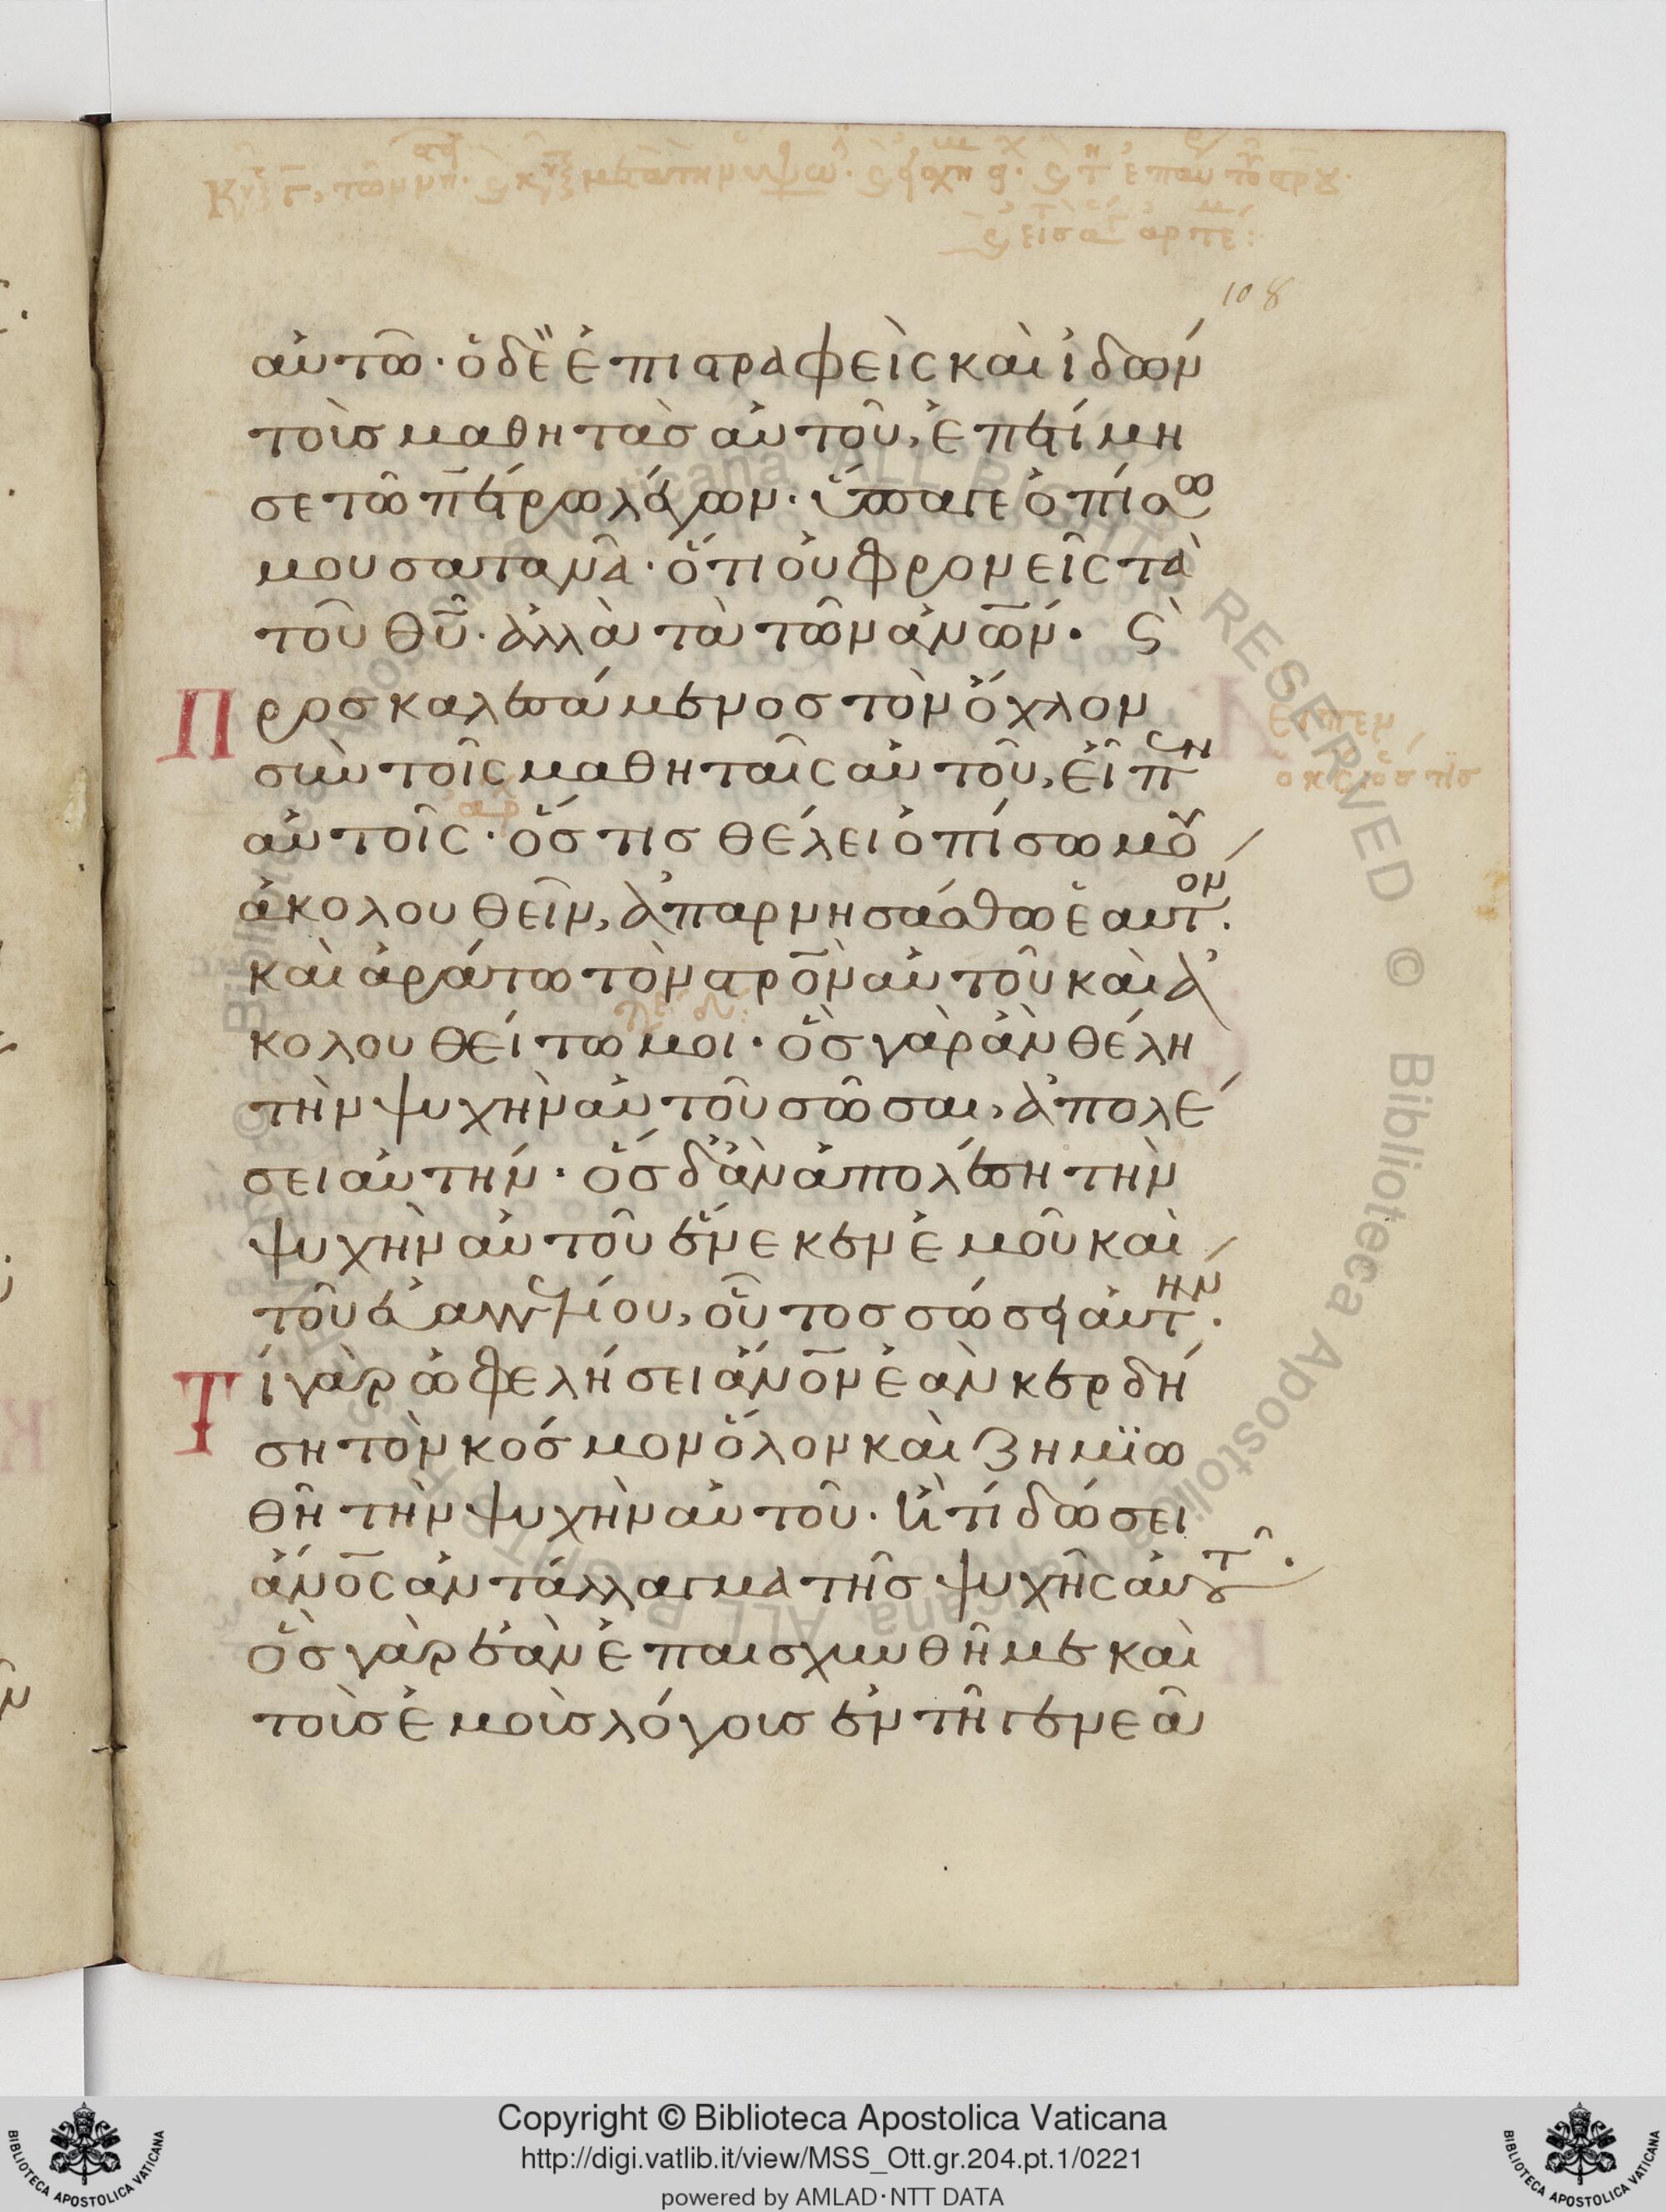 108
αὐτῶ· ὁ δὲ ἐπιστραφεὶς καὶ ἰδὼν
τοὺς μαθητὰς αὐτοῦ, ἐπετίμη
σε τῶ πέτρω λέγων· ὕπαγε ὀπίσω
μου σατανᾶ· ὅτι οὐ φρονεῖς τὰ
τοῦ θῦ· ἀλλὰ τὰ τῶν ἀνων· ϛ
Προσκαλεσάμενος τὸν ὄχλον
σὺν τοῖς μαθηταῖς αὐτοῦ, εἶπεν
αὐτοῖς· ὅστις θέλει ὀπίσω μου
ἀκολουθεῖν, ἀπαρνησάσθω ἑαυτον·
καὶ ἀράτω τὸν στρον αὐτοῦ καὶ ἀ
κολουθείτω μοι· ὃς γὰρ ἂν θέλη
τὴν ψυχὴν αὐτοῦ σῶσαι, ἀπολέ
σει αὐτήν· ὃς δ' ἂν ἀπολέση τὴν
ψυχὴν αὐτοῦ ἕνεκεν ἐμοῦ καὶ
τοῦ εὐαγγελίου, οὗτος σώσει αὐτην·
Τί γὰρ ὠφελήσει ἄνον ἐὰν κερδή
ση τὸν κόσμον ὅλον καὶ ζημιω
θῆ τὴν ψυχὴν αὐτοῦ· ἢ τί δώσει
ἄνος ἀντάλλαγμα τῆς ψυχῆς αὐτοῦ·
ὃς γὰρ ἐὰν ἐπαισχυνθῆ με καὶ
τοὺς ἐμοὺς λόγους ἐν τῆ γενεᾶ
Copyright © Biblioteca Apostolica Vaticana
http://digi.vatlib.it/view/MSS_Ott.gr.204.pt.1/0221
powered by AMLAD·NTT DATA
BIBLIOTECA APOSTOLICA VATICANA
BIBLIOTECA APOSTOLICA VATICANA